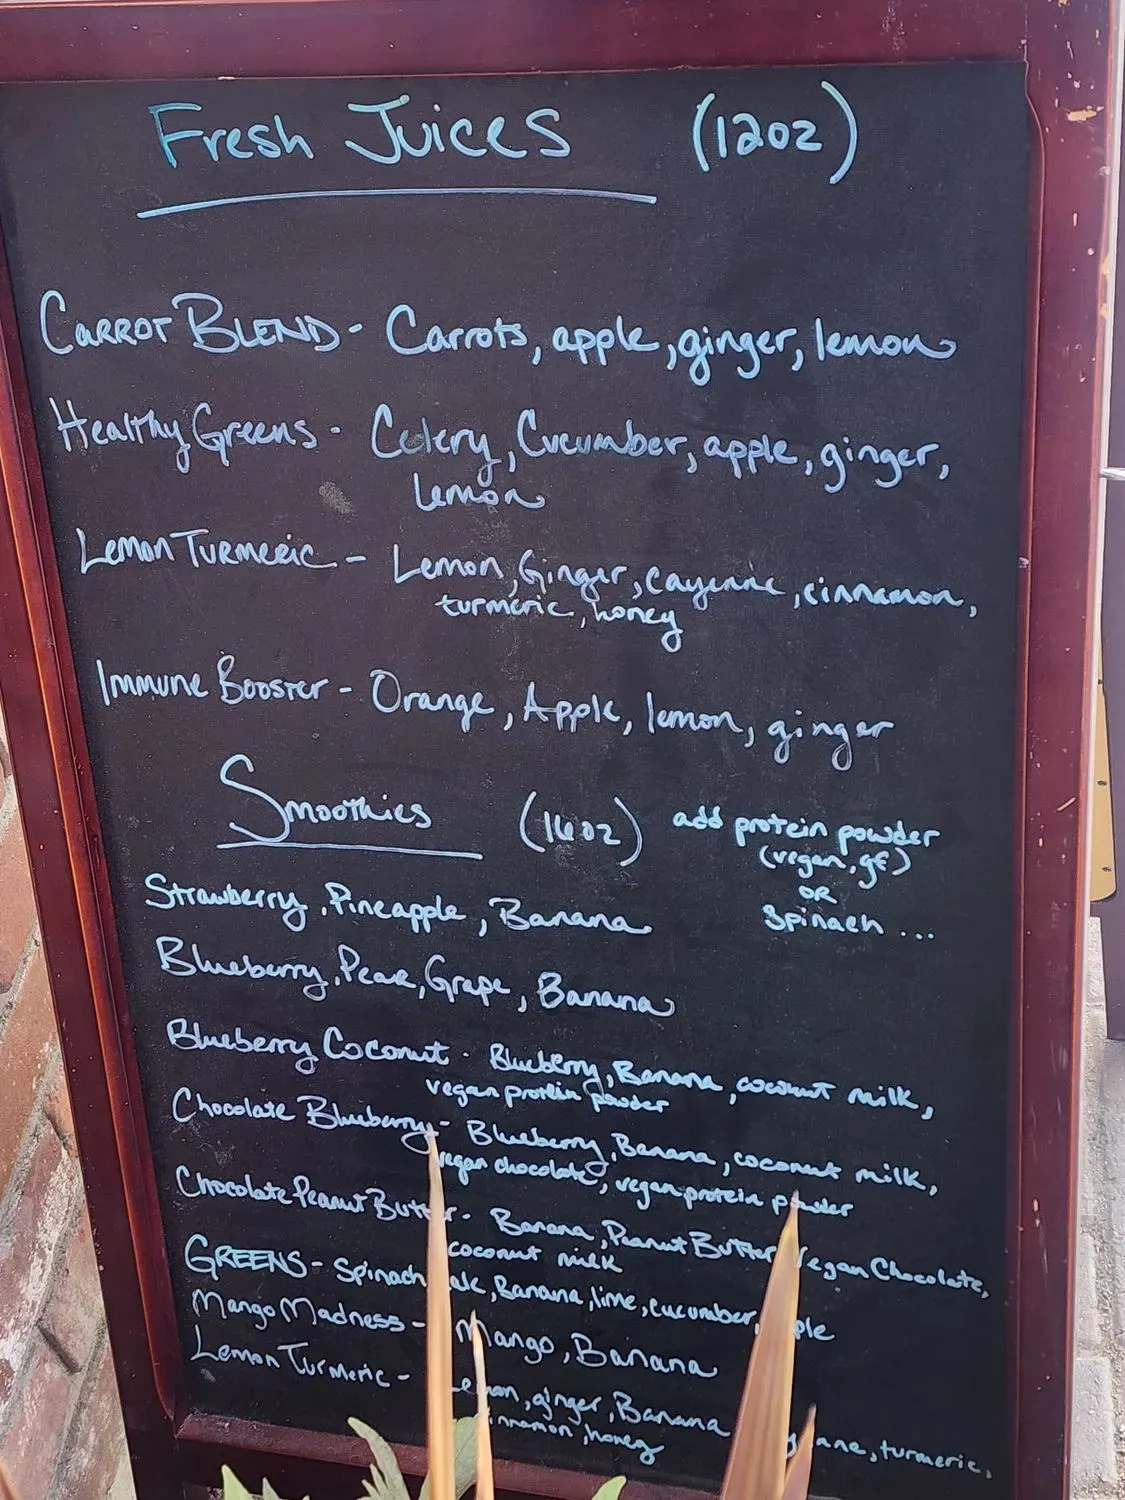 Fresh Juices (12oz)
CARROT BLEND - Carrots, apple, ginger, lemon
Healthy Greens - Celery, Cucumber, apple, ginger,
Lemon
Lemon Turmeric - Lemon, Ginger, cayenne, cinnamon,
turmeric, honey
Immune Booster - Orange, Apple, lemon, ginger
Smoothies (16oz) add protein powder
(vegan, gf)
OR
Spinach ...
Strawberry, Pineapple, Banana
Blueberry, Pear, Grape, Banana
Blueberry Coconut - Blueberry, Banana, coconut milk,
vegan protein powder
Chocolate Blueberry - Blueberry, Banana, coconut milk,
vegan chocolate, vegan protein powder
Chocolate Peanut Butter - Banana, Peanut Butter, Vegan Chocolate,
coconut milk
GREENS - Spinach Banana, lime, cucumber,
Mango Madness - Mango, Banana
Lemon Turmeric - Lemon, ginger, Banana turmeric,
honey